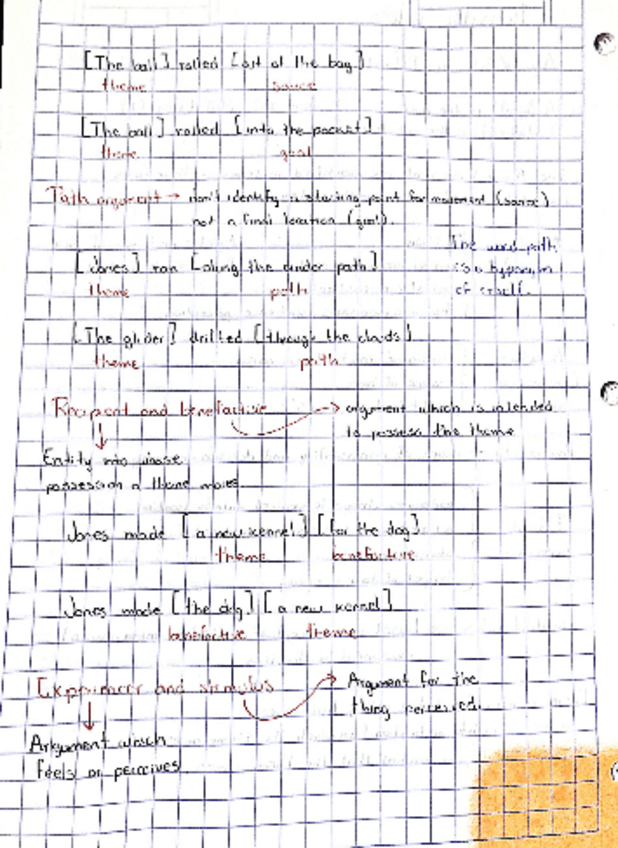 [The ball] rolled [out of the bag]
theme source
[The ball] rolled [into the pocket]
theme goal
Path argument → don't identify a starting point for movement (source)
not a final location (goal).
The word path
is a hyponym
of itself.
[Jones] ran [along the cinder path]
theme path
[The glider] drifted [through the clouds]
theme path
Recipient and benefactive → argument which is intended
to possess the theme
Entity into whose
possession a theme moves
Jones made [a new kennel] [for the dog]
theme benefactive
Jones made [the dog] [a new kennel]
benefactive theme
Experiencer and stimulus → Argument for the
thing perceived.
Argument which
feels or perceives